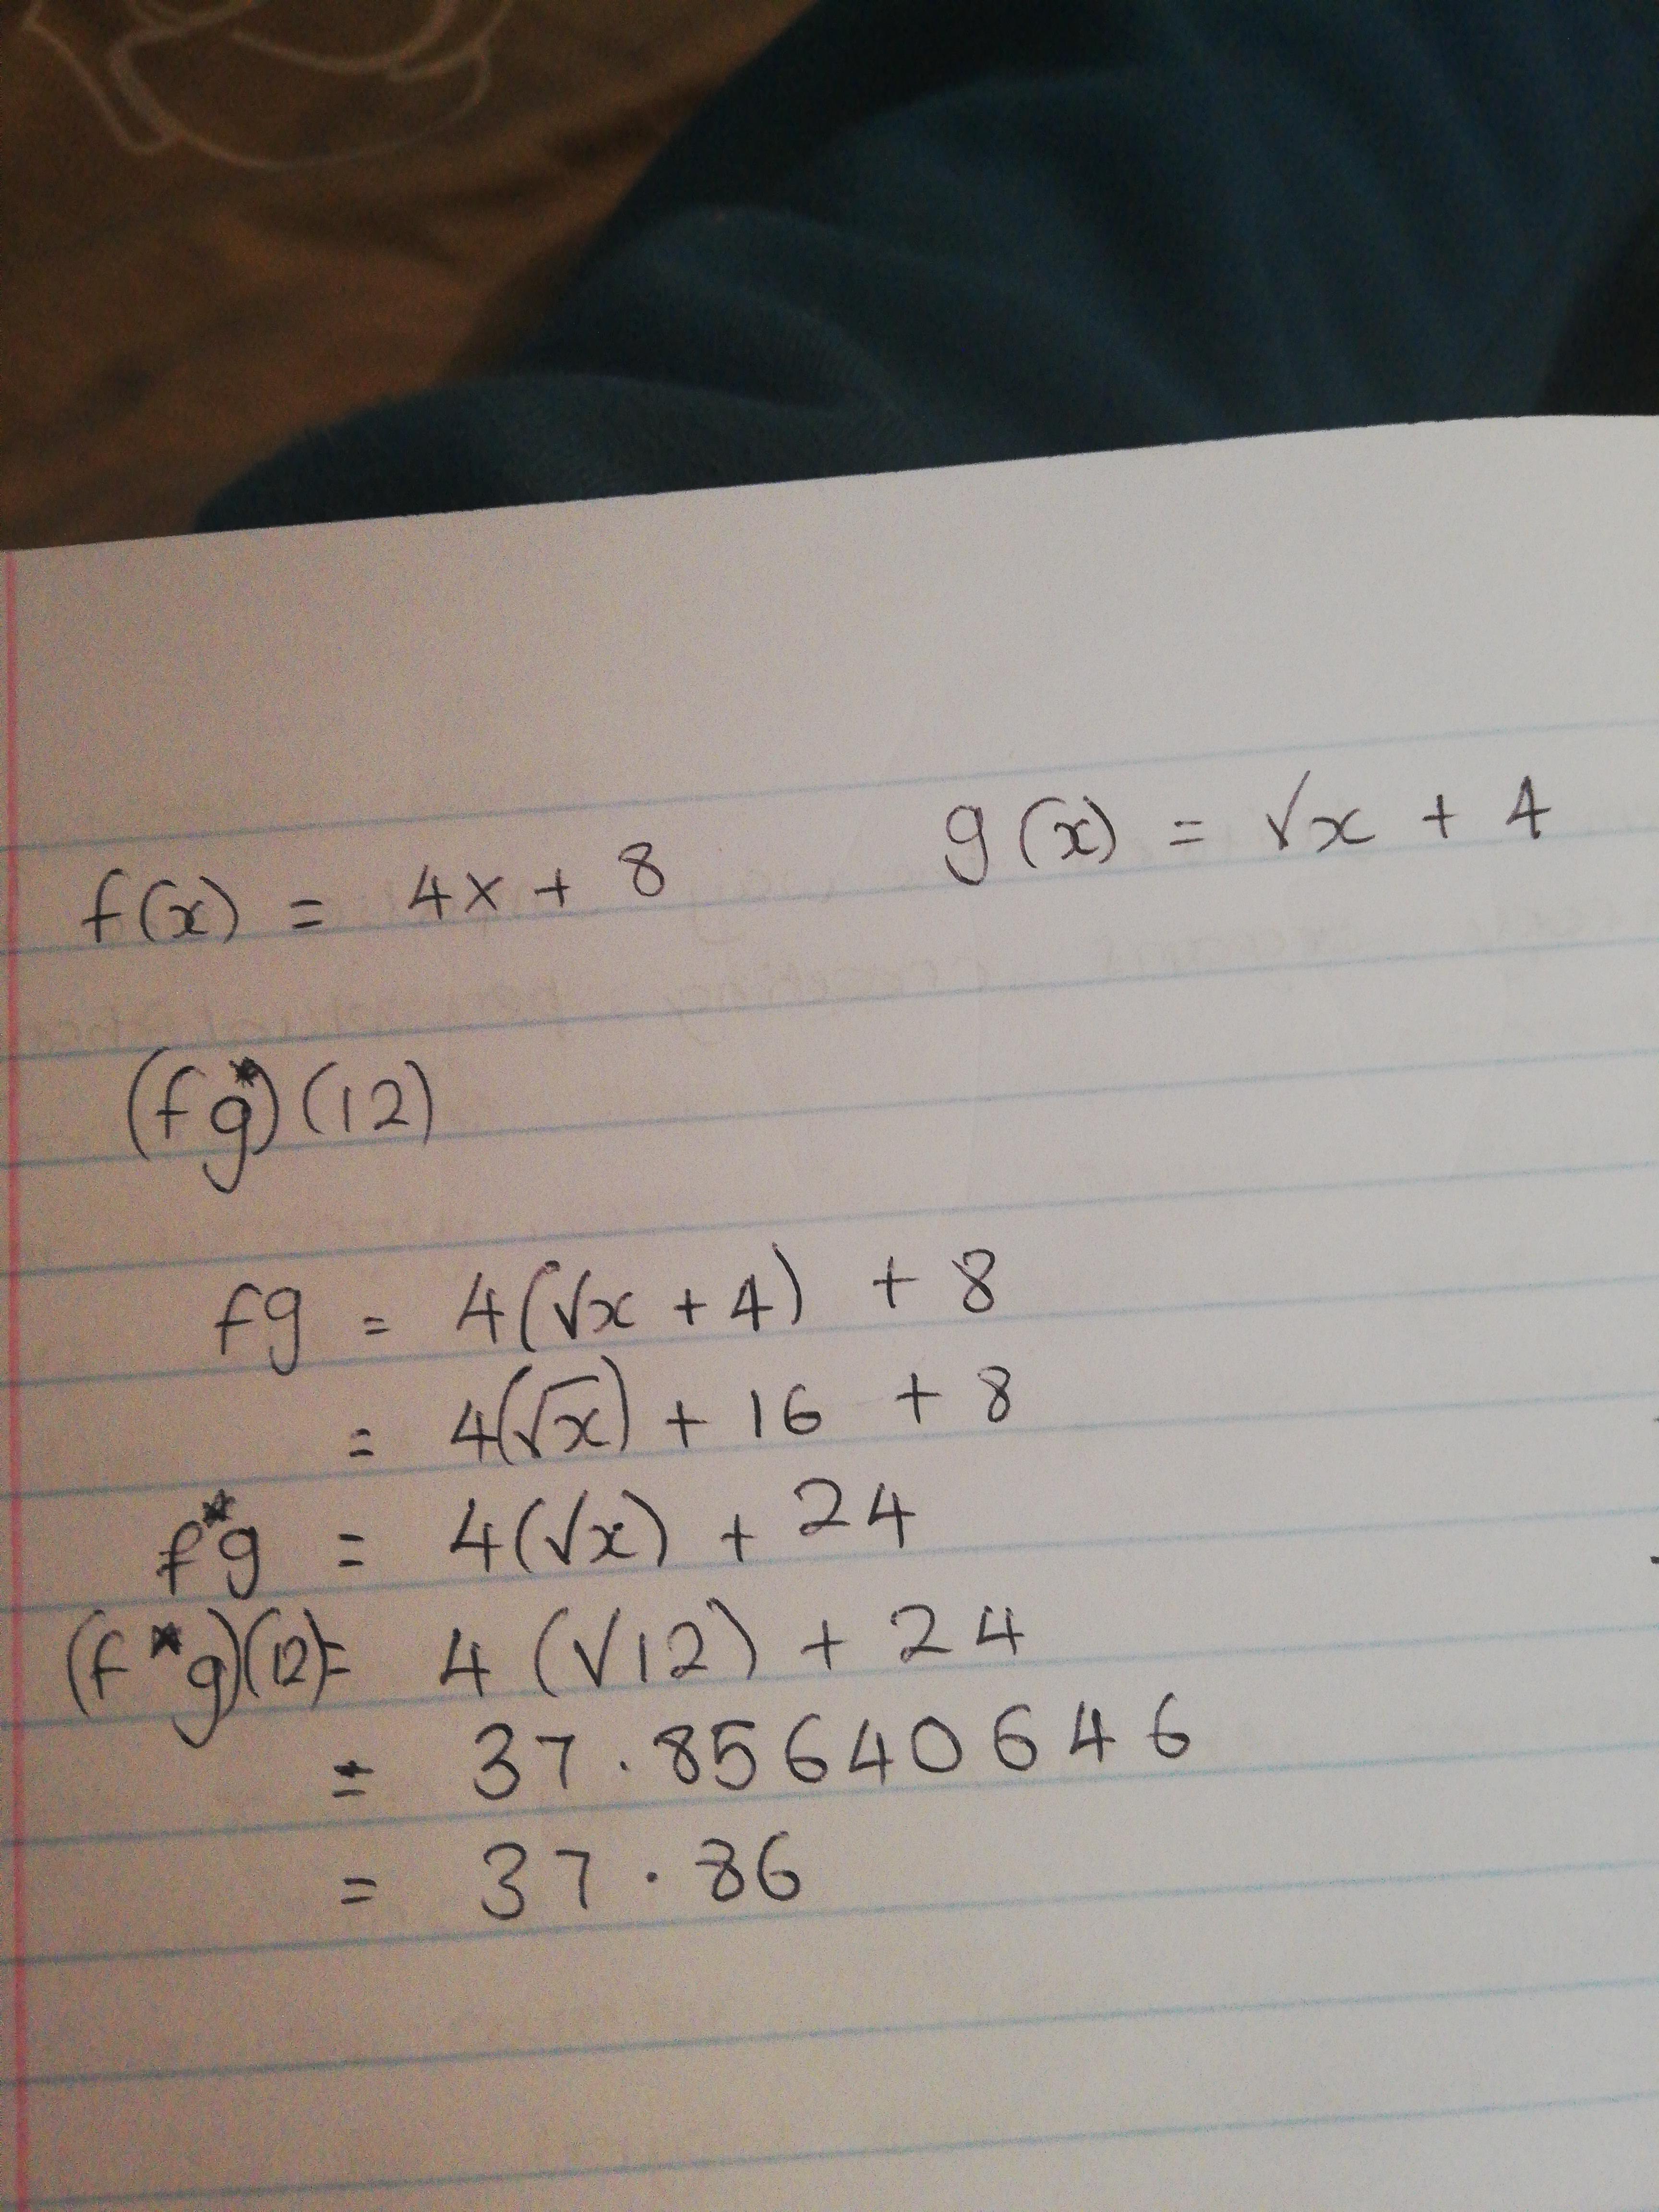 f(x) = 4x + 8 g(x) = √x + 4
(fg*)(12)
fg = 4(√x + 4) + 8
= 4(√x) + 16 + 8
f*g = 4(√x) + 24
(f*g)(12) = 4(√12) + 24
= 37.85640646
= 37.86